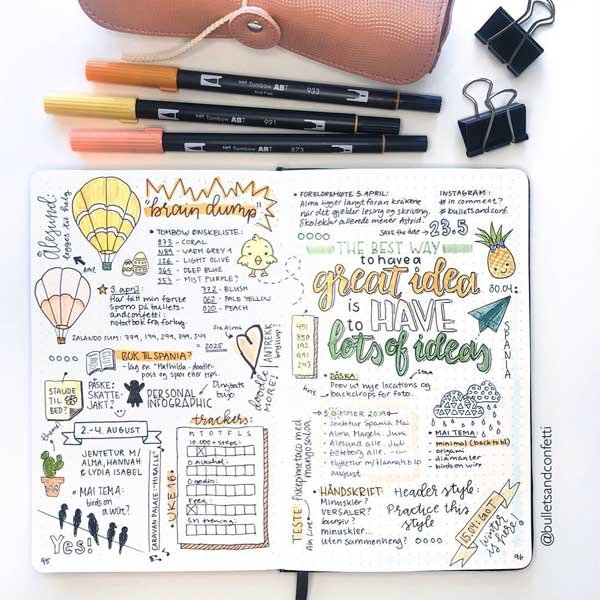 Tombow ABT 933
Tombow ABT 991
Tombow ABT 873
Ålesund:
"brain dump"
• TOMBOW ØNSKELISTE:
873 - CORAL
N89 - WARM GREY 1
126 - LIGHT OLIVE
565 - DEEP BLUE
553 - MIST PURPLE?
772 - BLUSH
062 - PALE YELLOW
020 - PEACH
3. april:
Har fått min første
spons på bullets-
andconfetti:
notatbok fra
ZALANDO SUM: 399, 199, 299, 399, 349
= 2025
Fra Alma
ANTREKK
bryllup?
doodle
MORE!
BOK TIL SPANIA?
- lag en "Mathilda-doodle-
post og spør etter tips.
STAUDE
TIL
BED?
PÅSKE:
SKATTE-
JAKT?
PERSONAL
INFOGRAPHIC
Dingbats
bujo
2.-4. AUGUST
JENTETUR M/
ALMA, HANNAH
& LYDIA ISABEL
• MAI TEMA:
birds on
a wire?
Yes!
CARAVAN PALACE: "MIRACLE"
UKE 16:
trackers:
M T O T F L S
10.000 steps:
0 alkohol:
0 godis:
Frea
SH trening:
95
• FORELDREMØTE 5. APRIL:
Alma ligger langt foran kravene
når det gjelder lesing og skriving.
Skoleklar allerede mener Astrid.
INSTAGRAM:
# in comment?
# bulletsandconf.
Save the date → 23.5
THE BEST WAY
to have a
great idea
is
to HAVE
lots of ideas
30.04:
SPANIA
451
850
192
991
243
PÅSKA:
Prøv ut nye locations og
backdrops for foto.
SOMMER 2019:
Jentetur Spania: Mai
Alma Hageb: Jun
Ålesund alle: Juli
Göteborg alle:
Hyttetur m/Hannah &co
august
TESTE: fiskepinnetaco med
mangosalsa
MAI TEMA:
minimal (back to bl)
origami
diamanter
birds on wire
• HÅNDSKRIFT:
Minuskler?
VERSALER?
kursiv?
minuskler...
uten sammenheng?
Header style:
Practice this
style
15.04: G.O.T
Winter
is here!
96
@bulletsandconfetti